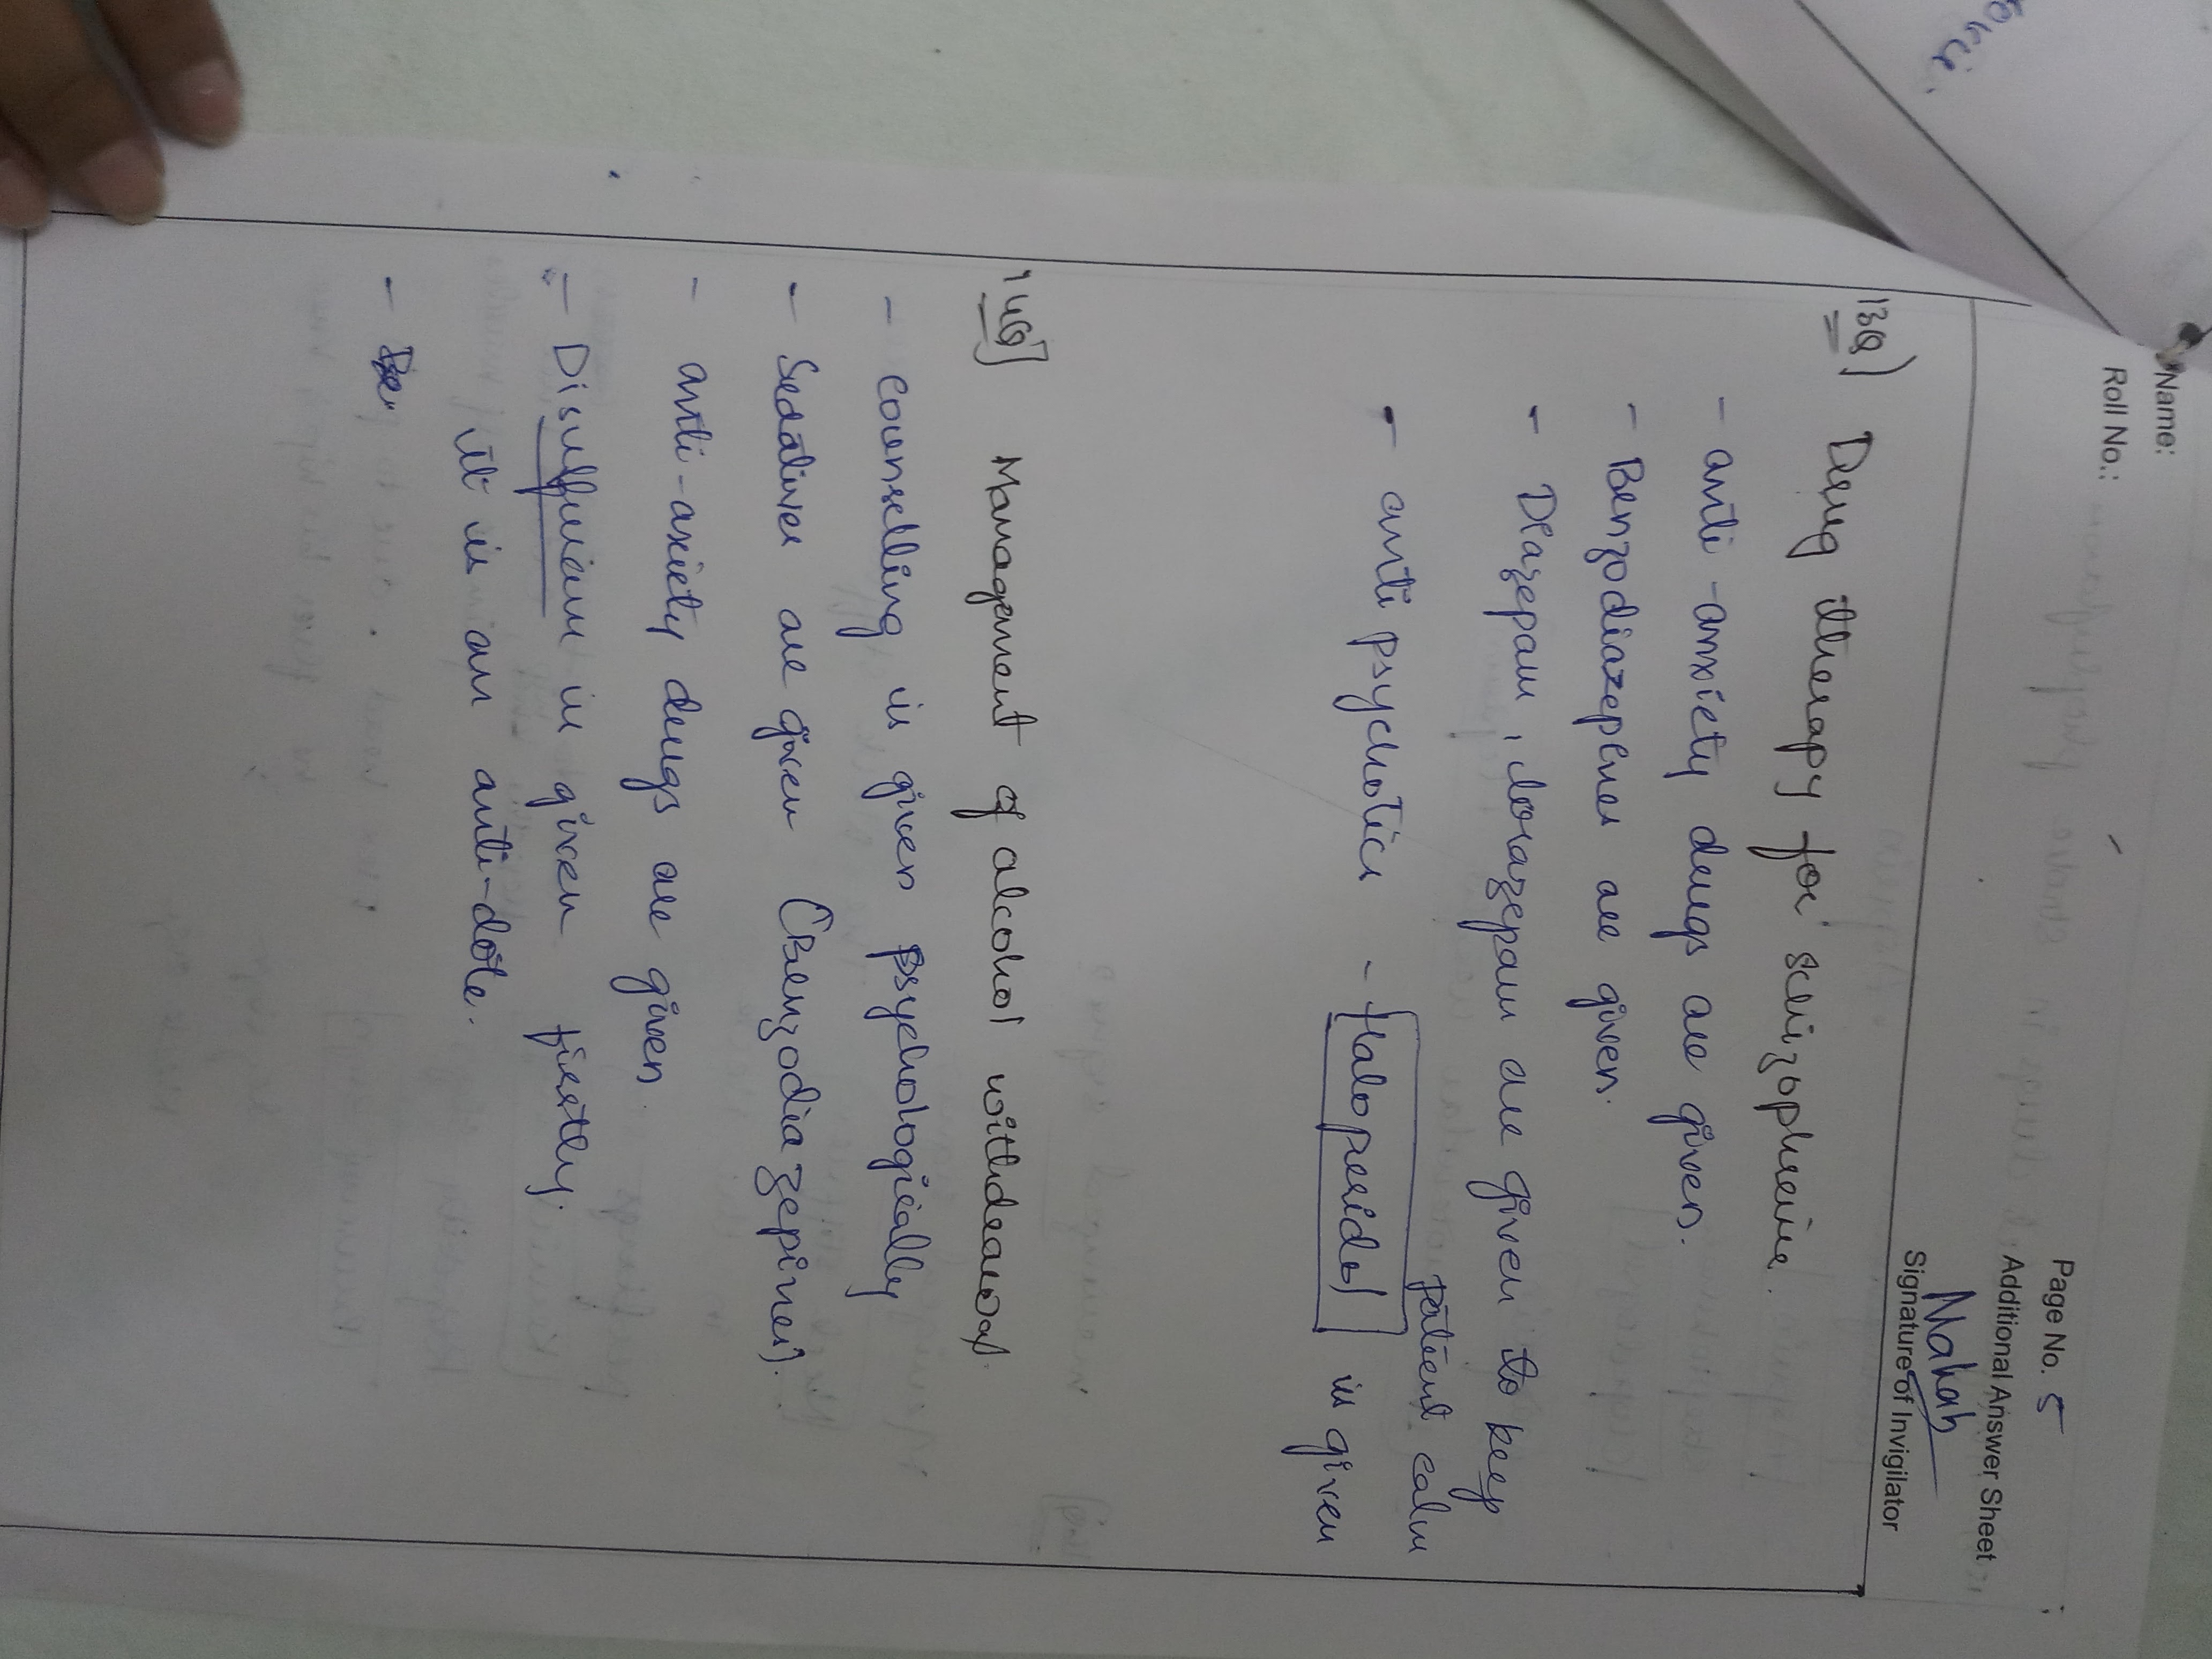 Name:
Roll No.:
Page No. 5
Additional Answer Sheet
Mahab
Signature of Invigilator
13Q) Drug therapy for scizophreine.
- anti-anxiety drugs are given.
- Benzodiazepenes are given.
- Diazepam, lorazepam are given to keep
patient calm
- anti psychotics - Haloperidol is given
14Q] Management of alcohol withdrawal.
- counselling is given psychologically
- Sedatives are given (Benzodiazepines).
- anti-axiety drugs are given.
- Disulfiram is given firstly.
it is an anti-dote.
-